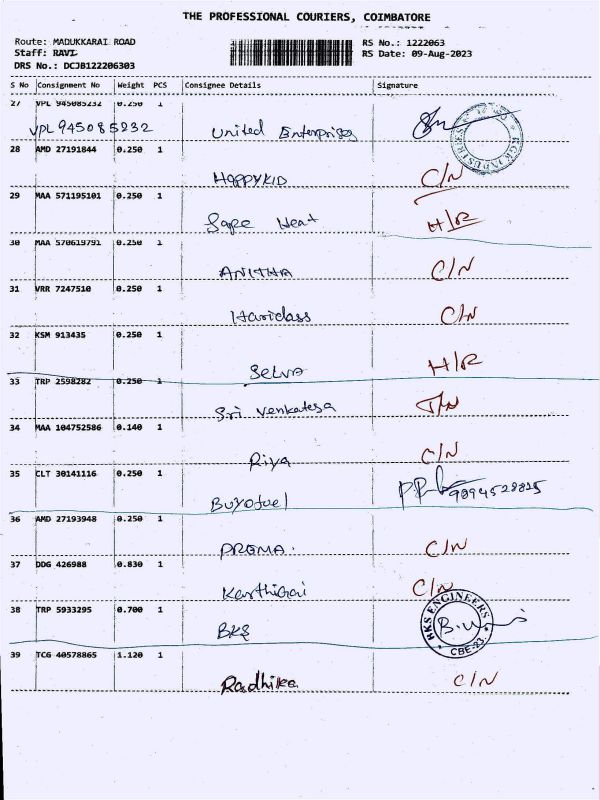 THE PROFESSIONAL COURIERS, COIMBATORE
Route: MADUKKARAI ROAD
Staff: RAVI
DRS No.: DCJB122206303
RS No.: 1222063
RS Date: 09-Aug-2023
S No Consignment No Weight PCS Consignee Details Signature
27 VPL 945085232 0.250 1
VPL 945085232 United Enterprises
28 AMD 27191844 0.250 1
HAPPYKID C/N
29 MAA 571195101 0.250 1
Heat H/R
30 MAA 570619791 0.250 1
ANITHA C/N
31 VRR 7247510 0.250 1
Haridass C/N
32 KSM 913435 0.250 1
SELVA H/R
33 TRP 2598282 0.250 1
Sri Venkatesa
34 MAA 104752586 0.140 1
Riya C/N
35 CLT 30141116 0.250 1
Buyofuel
36 AMD 27193948 0.250 1
PREMA. C/N
37 DDG 426988 0.830 1
Karthigai C/N
38 TRP 5933295 0.700 1
BKS
BKS ENGINEERS
CBE-23
39 TCG 40578865 1.120 1
Radhika C/N